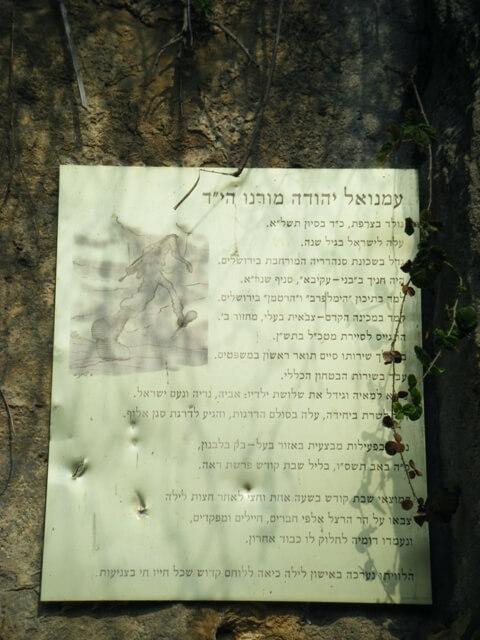 עמנואל יהודה מורנו הי"ד
נולד בצרפת, כ"ד בסיון תשל"א.
עלה לישראל בגיל שנה.
גדל בשכונת סנהדריה המורחבת בירושלים.
היה חניך ב"בני-עקיבא", סניף
למד בתיכון "הימלפרב" ו"הרטמן" בירושלים.
למד במכינה הקדם-צבאית בעלי, מחזור ב'.
התגייס לסיירת מטכ"ל בתש"ן.
שירותו סיים תואר ראשון במשפטים.
עבד בשירות הבטחון הכללי.
למאיה וגידל את שלושת ילדיו: אביה, נריה ונעם ישראל.
ביחידה, עלה בסולם הדרגות, והגיע לדרגת סגן אלוף.
בפעילות מבצעית באזור בעל-בק בלבנון,
כ"ה באב תשס"ו, בליל שבת קודש פרשת ראה.
במוצאי שבת קודש בשעה אחת וחצי לאחר חצות לילה
צבאו על הר הרצל אלפי חברים, חיילים ומפקדים,
ונעמדו דומיה לחלוק לו כבוד אחרון.
הלוויתו נערכה באישון לילה כיאה ללוחם קדוש שכל חייו חי בצניעות.